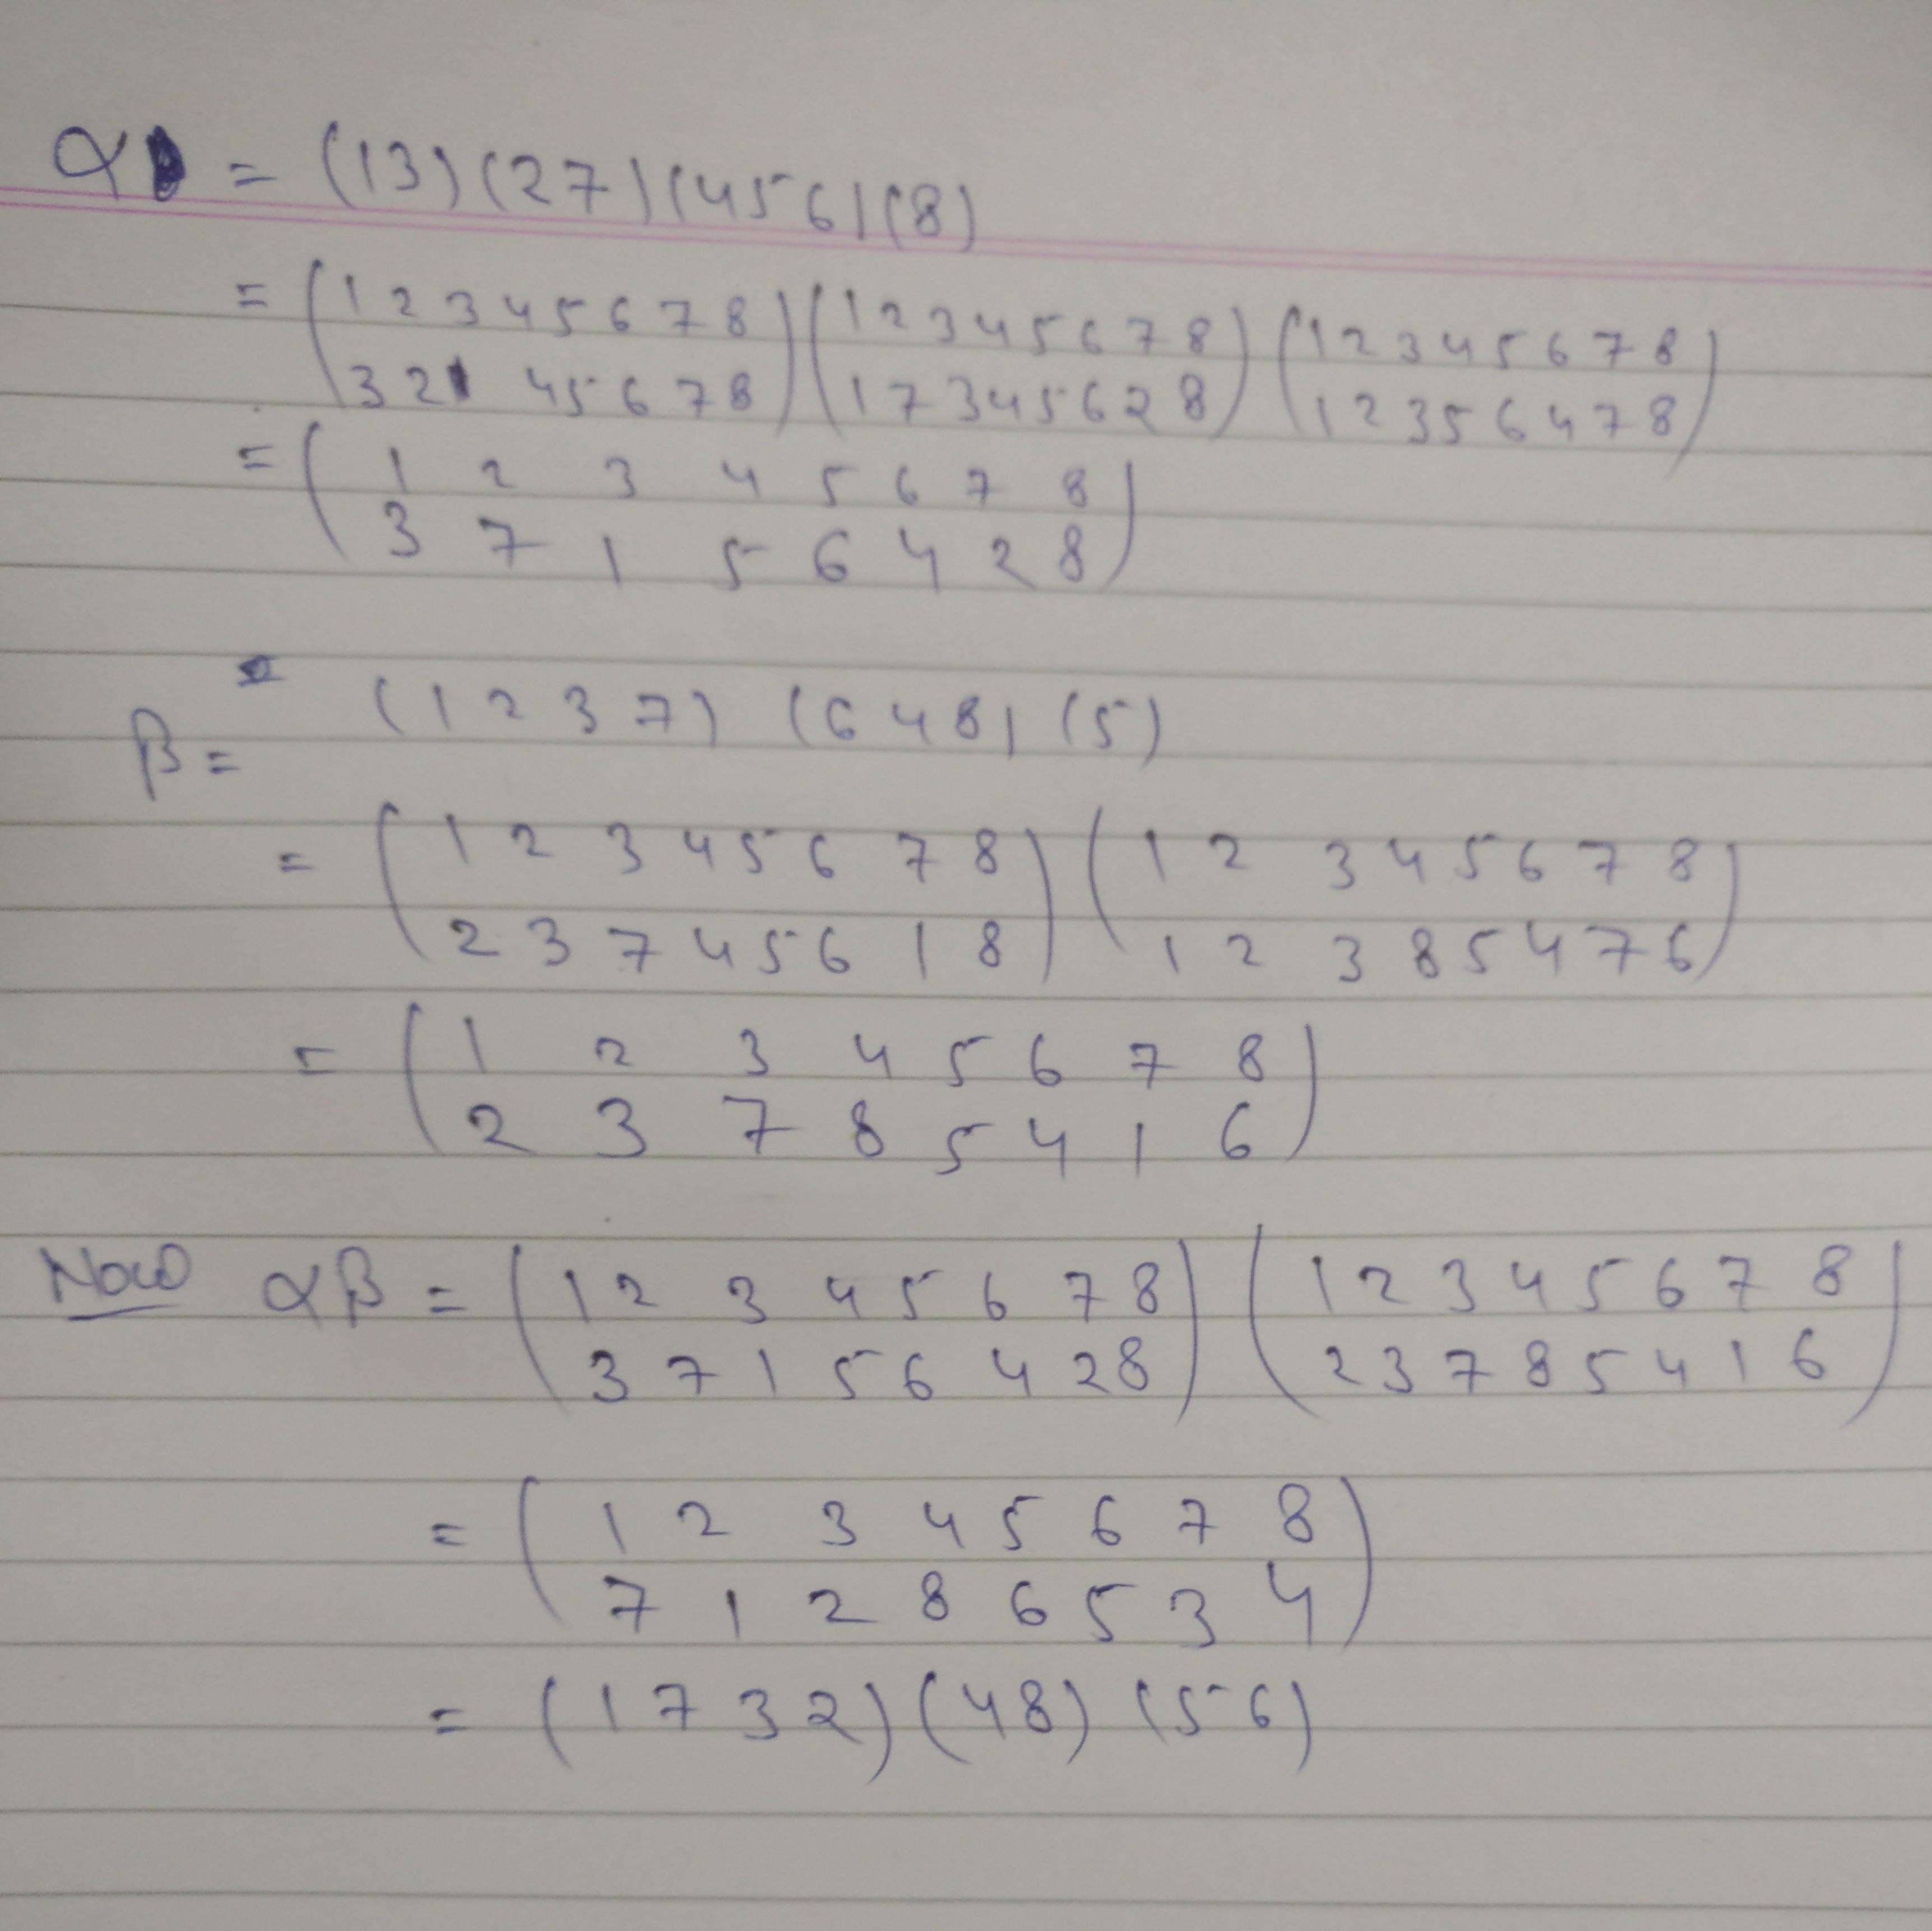 α = (13)(27)(456)(8)
= (1 2 3 4 5 6 7 8) (1 2 3 4 5 6 7 8) (1 2 3 4 5 6 7 8)
(3 2 1 4 5 6 7 8) (1 7 3 4 5 6 2 8) (1 2 3 5 6 4 7 8)
= (1 2 3 4 5 6 7 8)
(3 7 1 5 6 4 2 8)
β = (1 2 3 7) (6 4 8) (5)
= (1 2 3 4 5 6 7 8) (1 2 3 4 5 6 7 8)
(2 3 7 4 5 6 1 8) (1 2 3 8 5 4 7 6)
= (1 2 3 4 5 6 7 8)
(2 3 7 8 5 4 1 6)
Now αβ = (1 2 3 4 5 6 7 8) (1 2 3 4 5 6 7 8)
(3 7 1 5 6 4 2 8) (2 3 7 8 5 4 1 6)
= (1 2 3 4 5 6 7 8)
(7 1 2 8 6 5 3 4)
= (1 7 3 2) (4 8) (5 6)